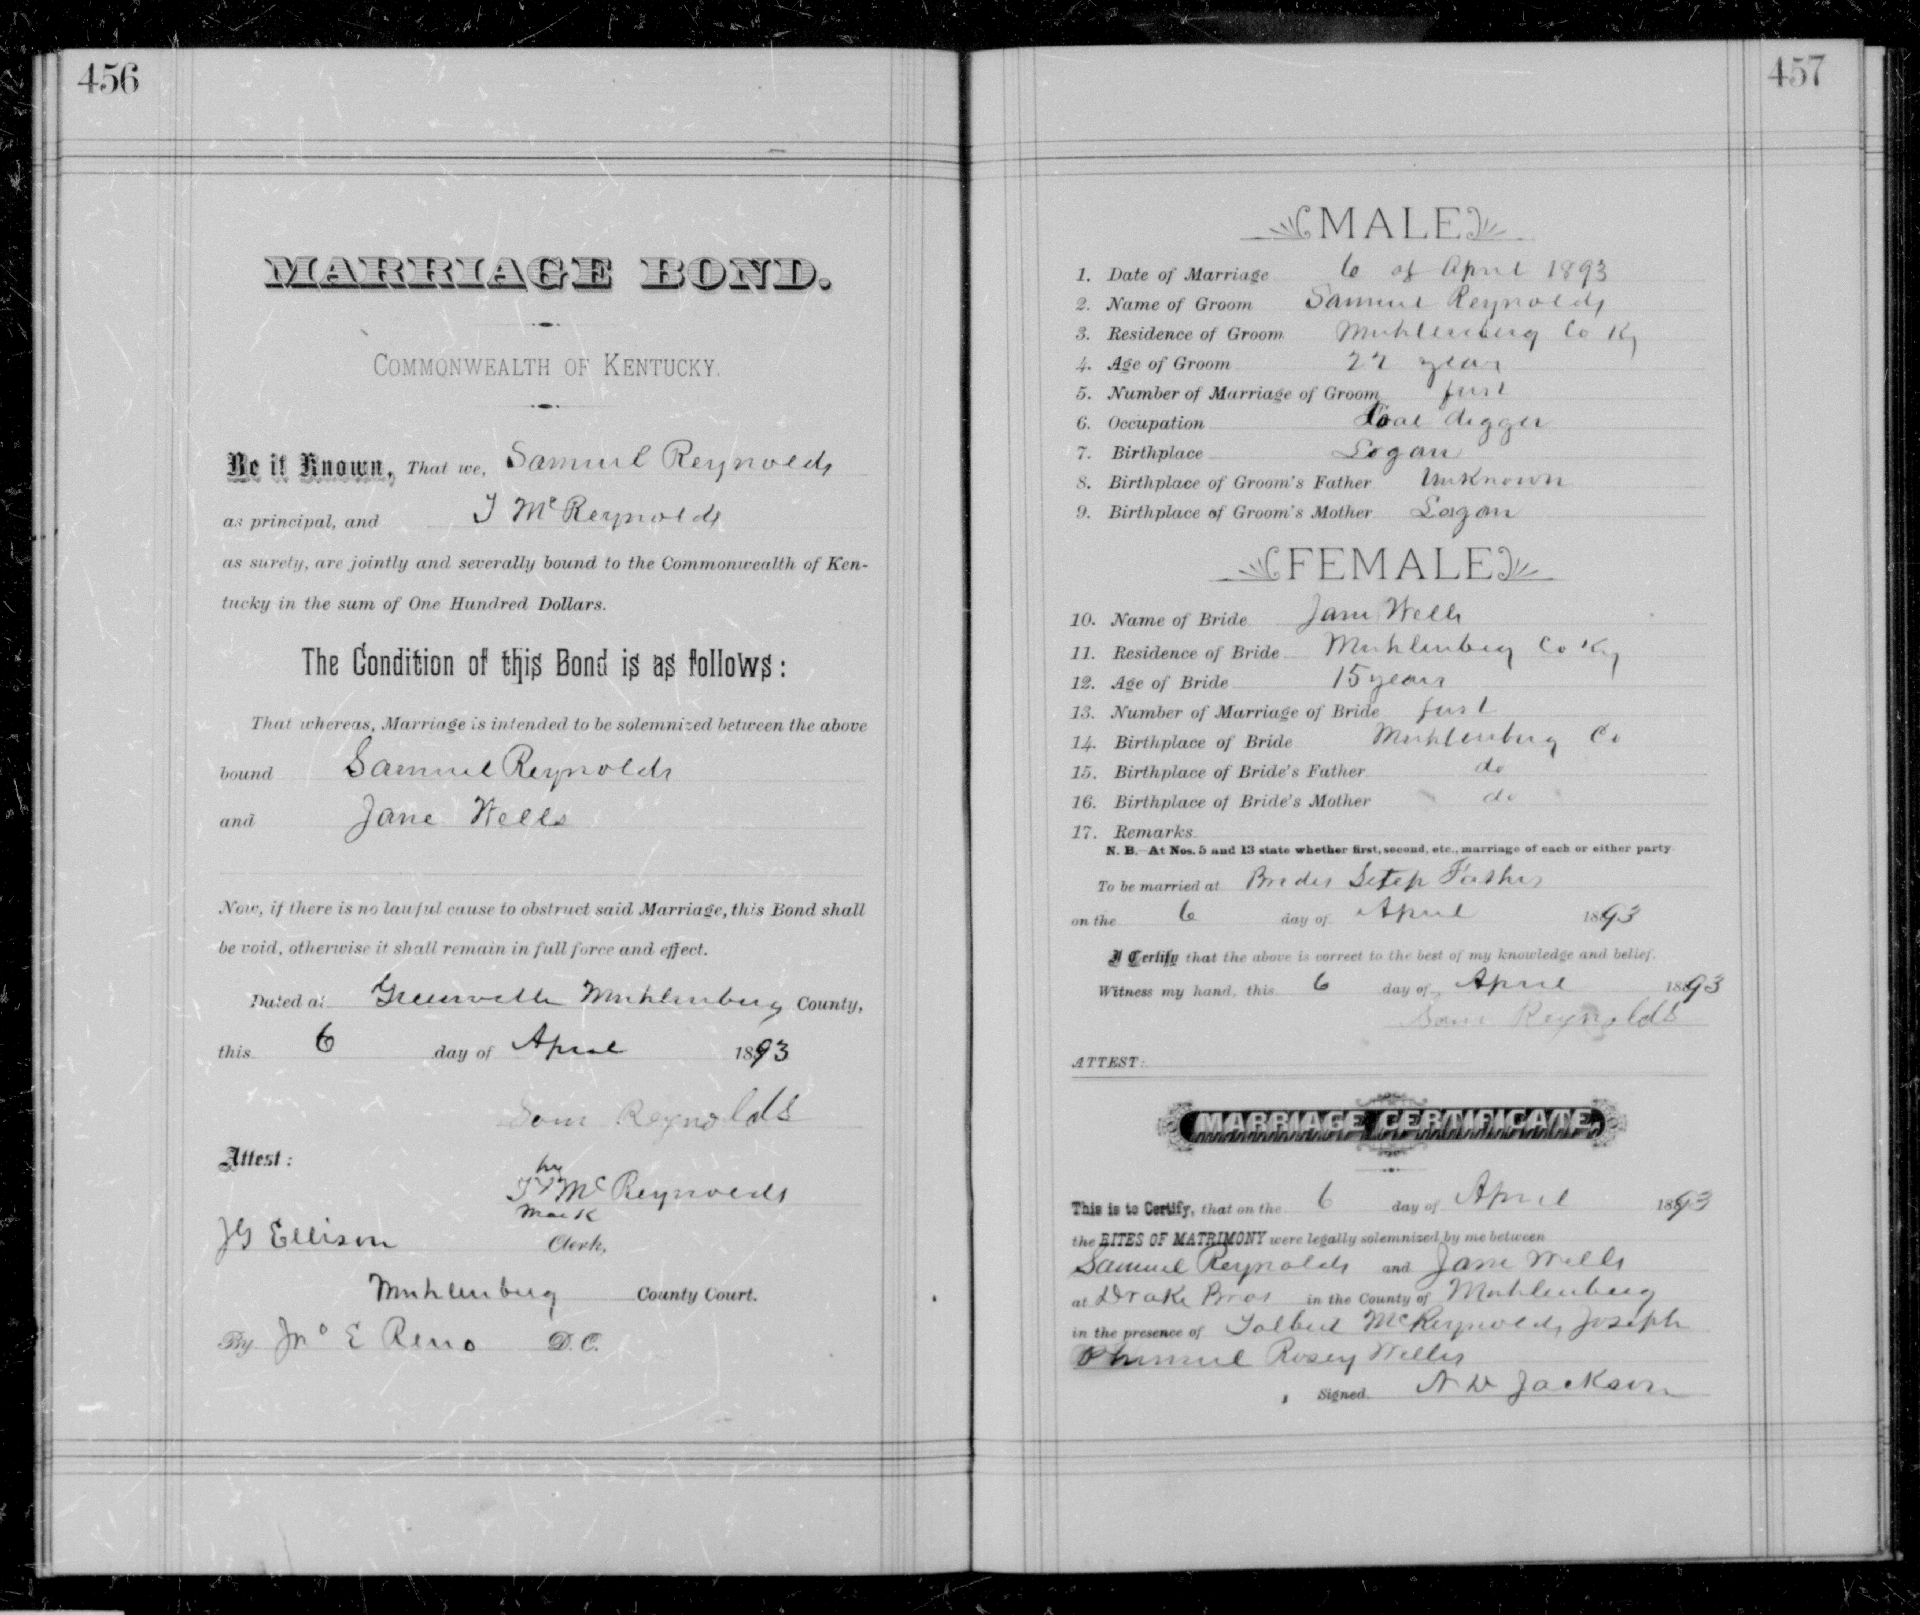 456
MARRIAGE BOND.
COMMONWEALTH OF KENTUCKY.
Be it Known, That we, Samuel Reynolds
as principal, and T McReynolds
as surety, are jointly and severally bound to the Commonwealth of Ken-
tucky in the sum of One Hundred Dollars.
The Condition of this Bond is as follows:
That whereas, Marriage is intended to be solemnized between the above
bound Samuel Reynolds
and Jane Wells
Now, if there is no lawful cause to obstruct said Marriage, this Bond shall
be void, otherwise it shall remain in full force and effect.
Dated at Greenville Muhlenberg County,
this 6 day of April 1893
Sam Reynolds
Attest:
his
T x McReynolds
mark
JG Ellison Clerk,
Muhlenberg County Court.
By Jno E Reno D. C.
457
MALE
1. Date of Marriage 6 of April 1893
2. Name of Groom Samuel Reynolds
3. Residence of Groom Muhlenberg Co Ky
4. Age of Groom 22 years
5. Number of Marriage of Groom first
6. Occupation Coal digger
7. Birthplace Logan
8. Birthplace of Groom's Father Unknown
9. Birthplace of Groom's Mother Logan
FEMALE
10. Name of Bride Jane Wells
11. Residence of Bride Muhlenberg Co Ky
12. Age of Bride 15 years
13. Number of Marriage of Bride first
14. Birthplace of Bride Muhlenberg Co
15. Birthplace of Bride's Father do
16. Birthplace of Bride's Mother do
17. Remarks
N. B.—At Nos. 5 and 13 state whether first, second, etc., marriage of each or either party.
To be married at Brides Setep Fathers
on the 6 day of April 1893
I Certify that the above is correct to the best of my knowledge and belief.
Witness my hand, this 6 day of April 1893
Sam Reynolds
ATTEST:
MARRIAGE CERTIFICATE.
This is to Certify, that on the 6 day of April 1893
the RITES OF MATRIMONY were legally solemnized by me between
Samuel Reynolds and Jane Wells
at Drake Bros in the County of Muhlenberg
in the presence of Tolbert McReynolds Joseph
Rosey Willis
Signed. N D Jackson